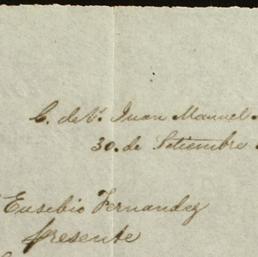 C. de V. Juan Manuel.
30. de Setiembre
Eusebio Fernandez
Presente